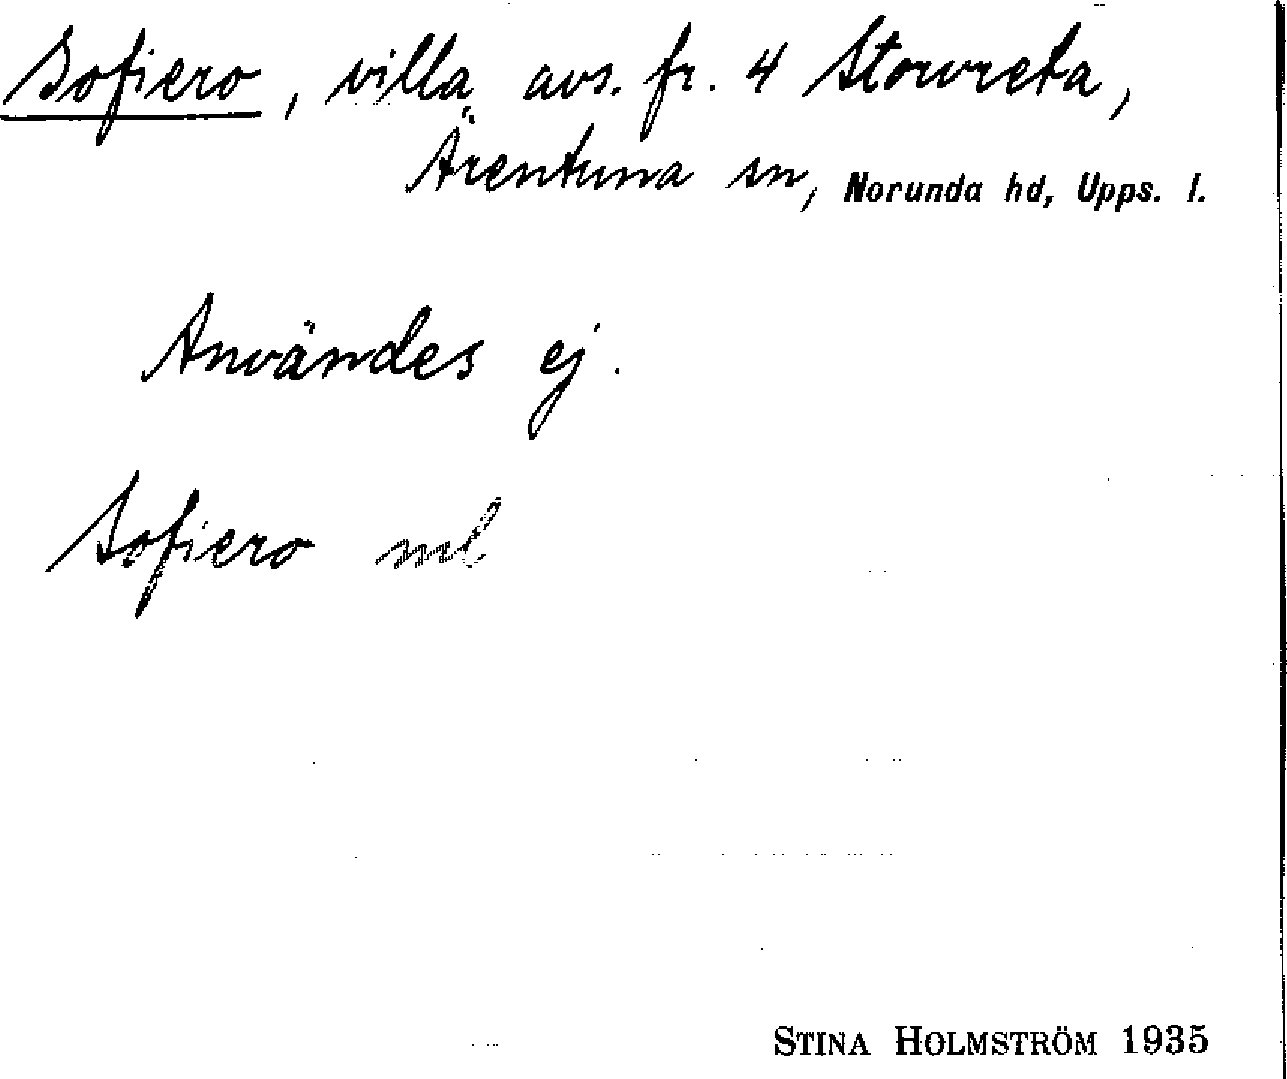 Sofiero, villa avs. fr. 4 Storvreta,
Ärentuna sn, Norunda hd, Upps. l.
Användes ej.
Sofiero ml
STINA HOLMSTRÖM 1935